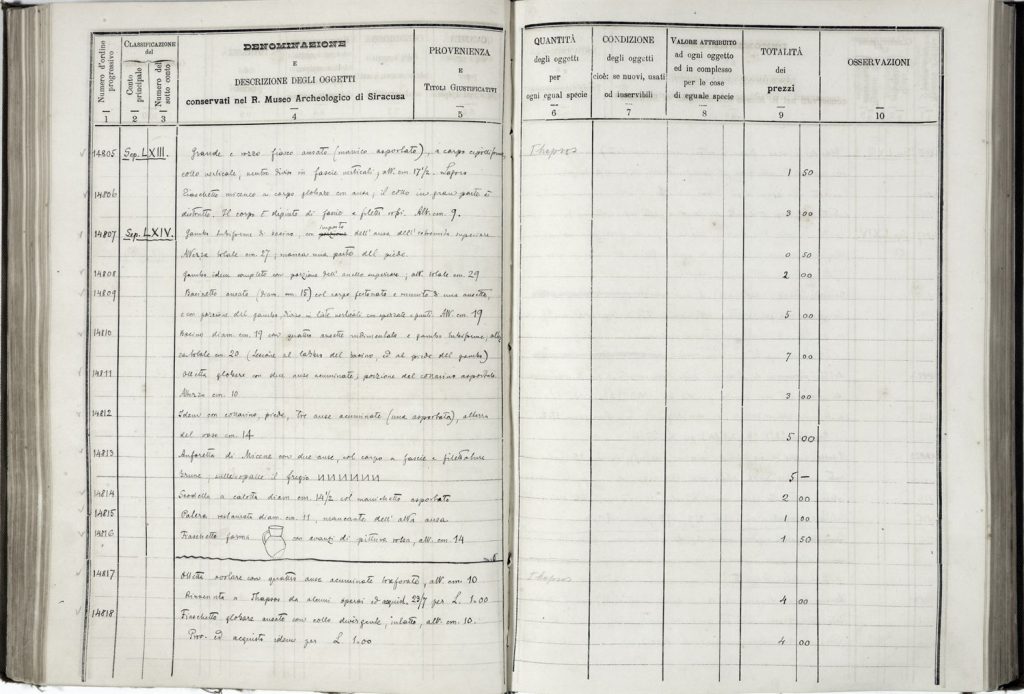 Numero d'ordine progressivo
CLASSIFICAZIONE del
Conto principale
Numero del sotto conto
DENOMINAZIONE
E
DESCRIZIONE DEGLI OGGETTI
conservati nel R. Museo Archeologico di Siracusa
PROVENIENZA
E
TITOLI GIUSTIFICATIVI
QUANTITÀ
degli oggetti
per
ogni egual specie
CONDIZIONE
degli oggetti
cioè: se nuovi, usati
od inservibili
VALORE ATTRIBUITO
ad ogni oggetto
ed in complesso
per le cose
di eguale specie
TOTALITÀ
dei
prezzi
OSSERVAZIONI
1 2 3 4 5 6 7 8 9 10
14805 Sep. LXIII. Grande e rozzo fiasco ansato (manico asportato), a corpo Thapsos
collo verticale, ventre diviso in fascie verticali; alt. cm. 17 1/2. 1 50
14806 Fiaschetto miceneo a corpo globare con ansa; il collo in gran parte è
distrutto. Il corpo è dipinto di fascie e filetti rossi. Alt. cm. 9. 3 00
14807 Sep. LXIV. Gamba tubiforme di bacino, con imposto dell'ansa dell'estremità superiore
Altezza totale cm. 27; manca una parte del piede. 0 50
14808 Gamba idem completa con porzione dell'anello superiore; alt. totale cm. 29 2 00
14809 Bacinetto ansato (diam. cm. 15) col corpo e munito di una ansetta,
e con porzione del gambo diviso in liste verticali con e punti. Alt. cm. 19 5 00
14810 Bacino diam. cm. 19 con quattro ansette rudimentali e gamba tubiforme,
totale cm. 20 (Lesione al labbro del bacino, ed al piede del gambo) 7 00
14811 Olletta globare con due anse acuminate; porzione del collarino asportata.
Altezza cm. 10 3 00
14812 Idem con collarino, piede, tre anse acuminate (una asportata), altezza
del vaso cm. 14 5 00
14813 Anforetta di Micene con due anse, col corpo a fascie e filettature
brune, sulle spalle il fregio ИИИИИИ 5 —
14814 Scodella a calotta diam. cm. 14 1/2 col manichetto asportato 2 00
14815 Patera restaurata diam. cm. 11, mancante dell'alta ansa 1 00
14816 Fiaschetto forma con avanzi di pittura rossa, alt. cm. 14 1 50
14817 Olletta con quattro anse acuminate traforate, alt. cm. 10 Thapsos
Rinvenuta a Thapsos da alcuni operai ed acquist. 23/7 per L. 1.00 4 00
14818 Fiaschetto globare ansato con collo divergente, intatto, alt. cm. 10.
Prov. ed acquisto idem per L. 1.00 4 00